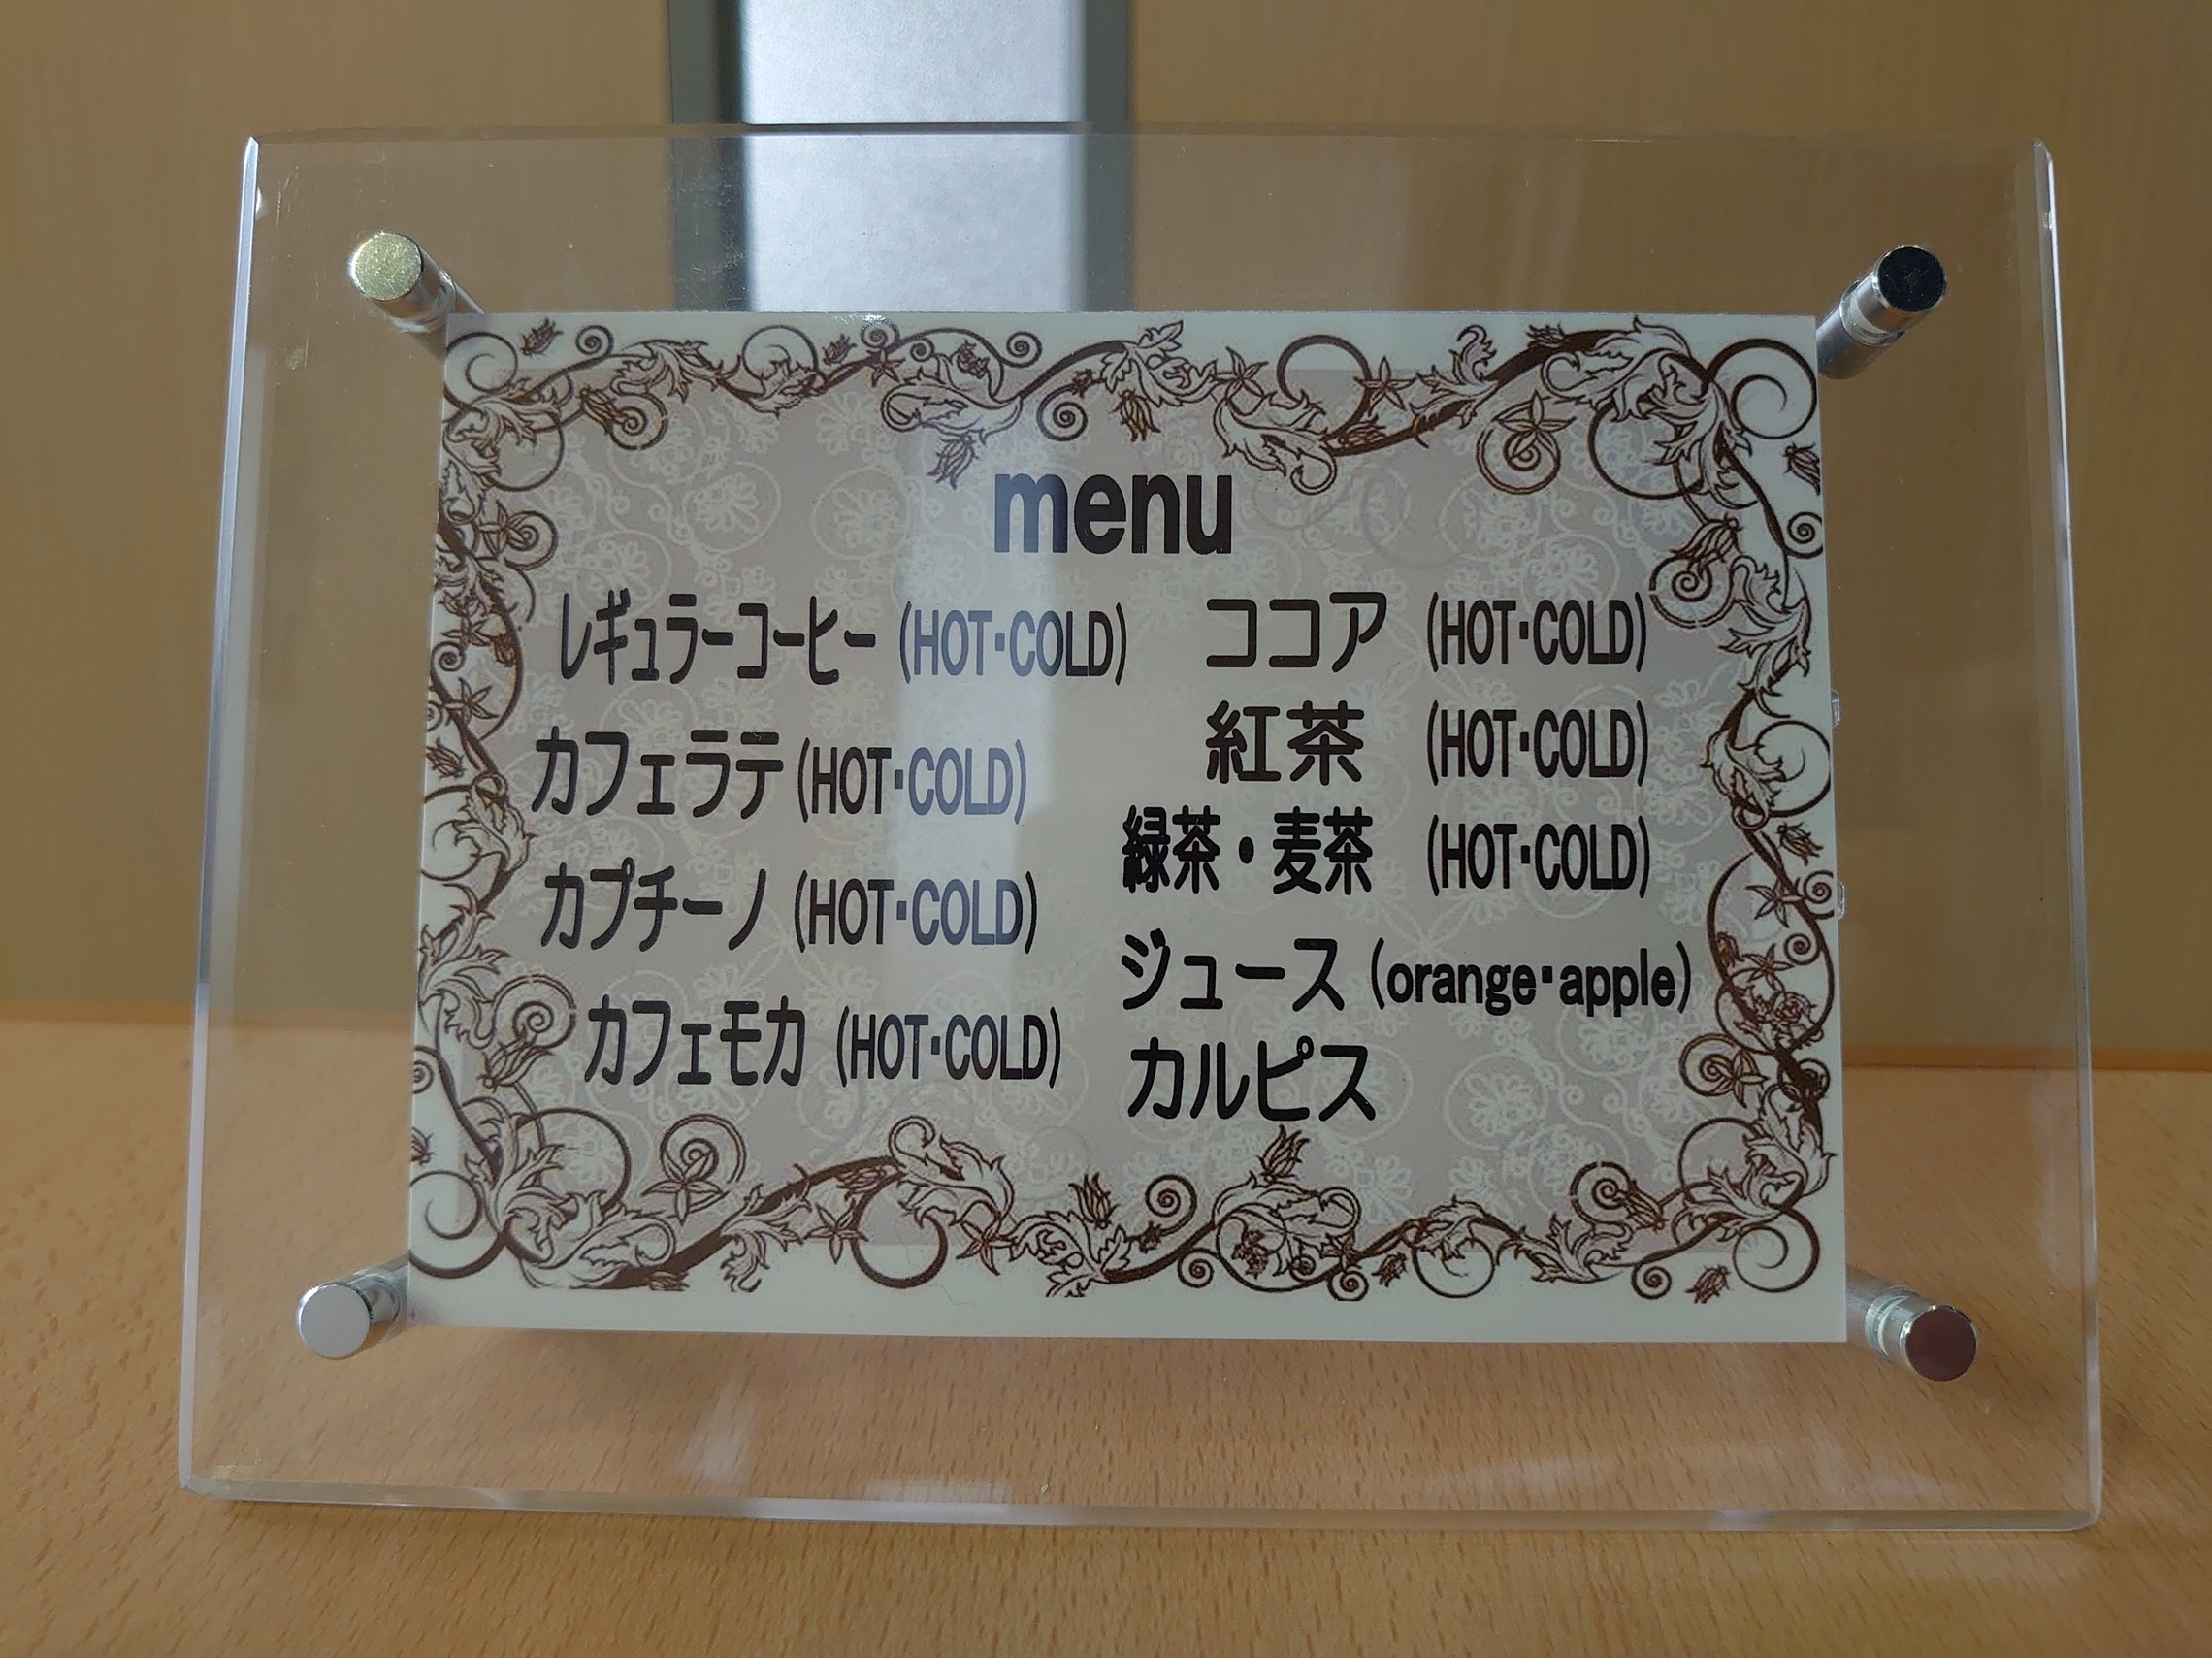 menu
レギュラーコーヒー (HOT・COLD)
カフェラテ (HOT・COLD)
カプチーノ (HOT・COLD)
カフェモカ (HOT・COLD)
ココア (HOT・COLD)
紅茶 (HOT・COLD)
緑茶・麦茶 (HOT・COLD)
ジュース (orange・apple)
カルピス